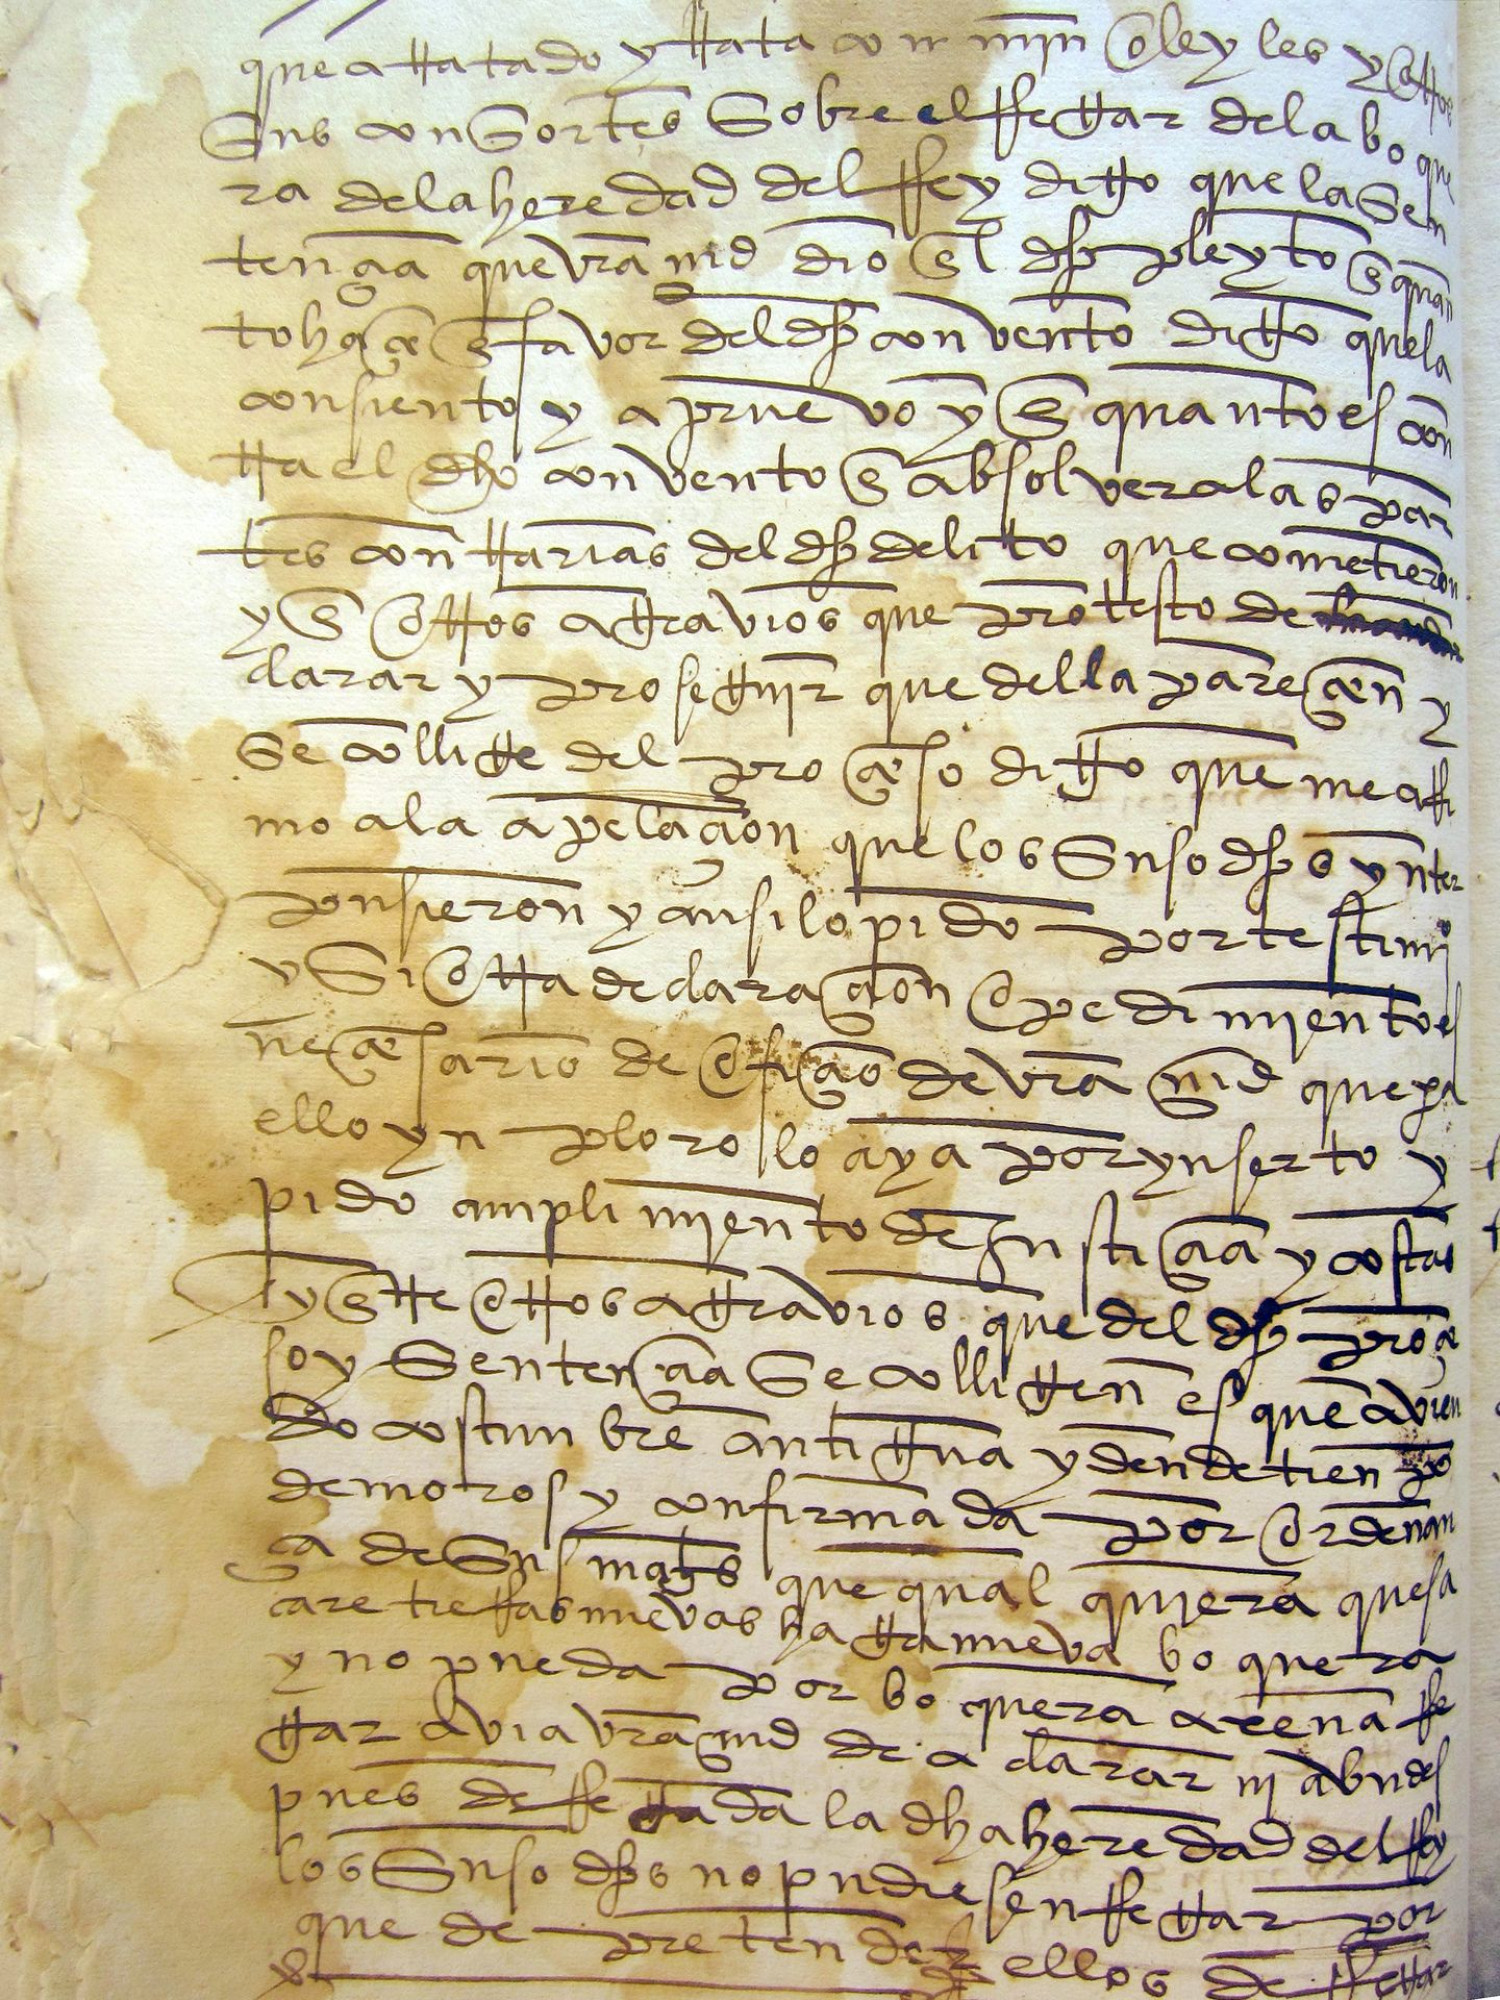 que a tratado y trata con min oleyles y otros
sus consortes sobre el rregar de la boque
ra de la heredad del rrey digo que la sen
tençia que vra md dio en el dho pleyto en quan
to haçe en favor del dho convento digo que la
consiento y apruevo y en quanto es con
tra el dho convento en absolver a las par
tes contrarias del dho delito que cometieron
y en otros agravios que protesto de
clarar y proseguir que della pareçen y
se collige del proçeso digo que me afir
mo a la apelaçion que los suso dhos ynter
pusieron y ansi lo pido por testimio
y si otra declaraçion o pedimiento es
neçesario de ofiçio de vra md que pa
ello ynploro lo aya por ynserto y
pido cumplimiento de Justiçia y costas
y entre otros agravios que del dho proçe
so y sentençia se colligen es que avien
do costunbre antigua y dende tienpo
de moros y confirmada por ordenan
ça de sus magts que qualquiera que sa
care tierras nuevas haga nueva boquera
y no pueda por boquera axena rre
gar avia vra md declarar ni aun des
pues de rregada la dha heredad del rrey
los suso dhos no pudiesen rregar por
que de pretender ellos de rregar